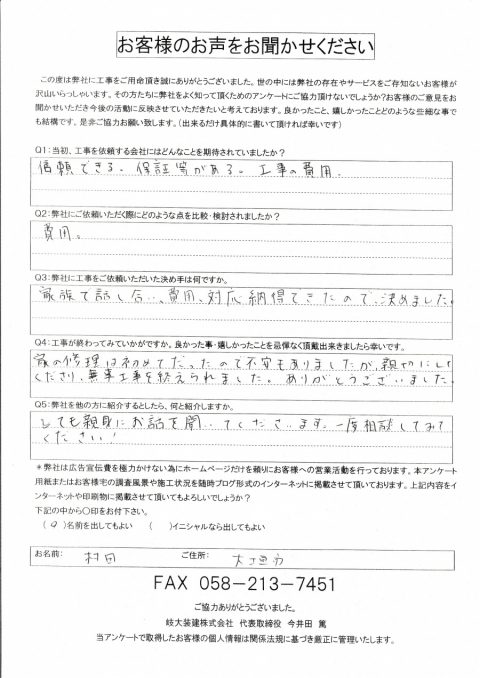 お客様のお声をお聞かせください
この度は弊社に工事をご用命頂き誠にありがとうございました。世の中には弊社の存在やサービスをご存知ないお客様が
沢山いらっしゃいます。その方たちに弊社をよく知って頂くためのアンケートにご協力頂けないでしょうか?お客様のご意見をお
聞かせいただき今後の活動に反映させていただきたいと考えております。良かったこと、嬉しかったことどのような些細な事で
も結構です。是非ご協力お願い致します。(出来るだけ具体的に書いて頂ければ幸いです)
Q1:当初、工事を依頼する会社にはどんなことを期待されていましたか?
信頼できる。保証等がある。工事の費用。
Q2:弊社にご依頼いただく際にどのような点を比較・検討されましたか?
費用。
Q3:弊社に工事をご依頼いただいた決め手は何ですか。
家族で話し合い、費用、対応納得できたので決めました。
Q4:工事が終わってみていかがですか。良かった事・嬉しかったことを忌憚なく頂戴出来きましたら幸いです。
家の修理は初めてだったので不安もありましたが、親切にして
くださり、無事工事を終えられました。ありがとうございました。
Q5:弊社を他の方に紹介するとしたら、何と紹介しますか。
とても親身にお話を聞いてくださいます。一度相談してみて
ください!
*弊社は広告宣伝費を極力かけない為にホームページだけを頼りにお客様への営業活動を行っております。本アンケート
用紙またはお客様宅の調査風景や施工状況を随時ブログ形式のインターネットに掲載させて頂いております。上記内容をイ
ンターネットや印刷物に掲載させて頂いてもよろしいでしょうか?
下記の中から〇印をお付下さい。
(○)名前を出してもよい ( )イニシャルなら出してもよい
お名前: 村田 ご住所: 大垣市
FAX 058-213-7451
ご協力ありがとうございました。
岐大装建株式会社 代表取締役 今井田 篤
当アンケートで取得したお客様の個人情報は関係法規に基づき厳正に管理いたします。